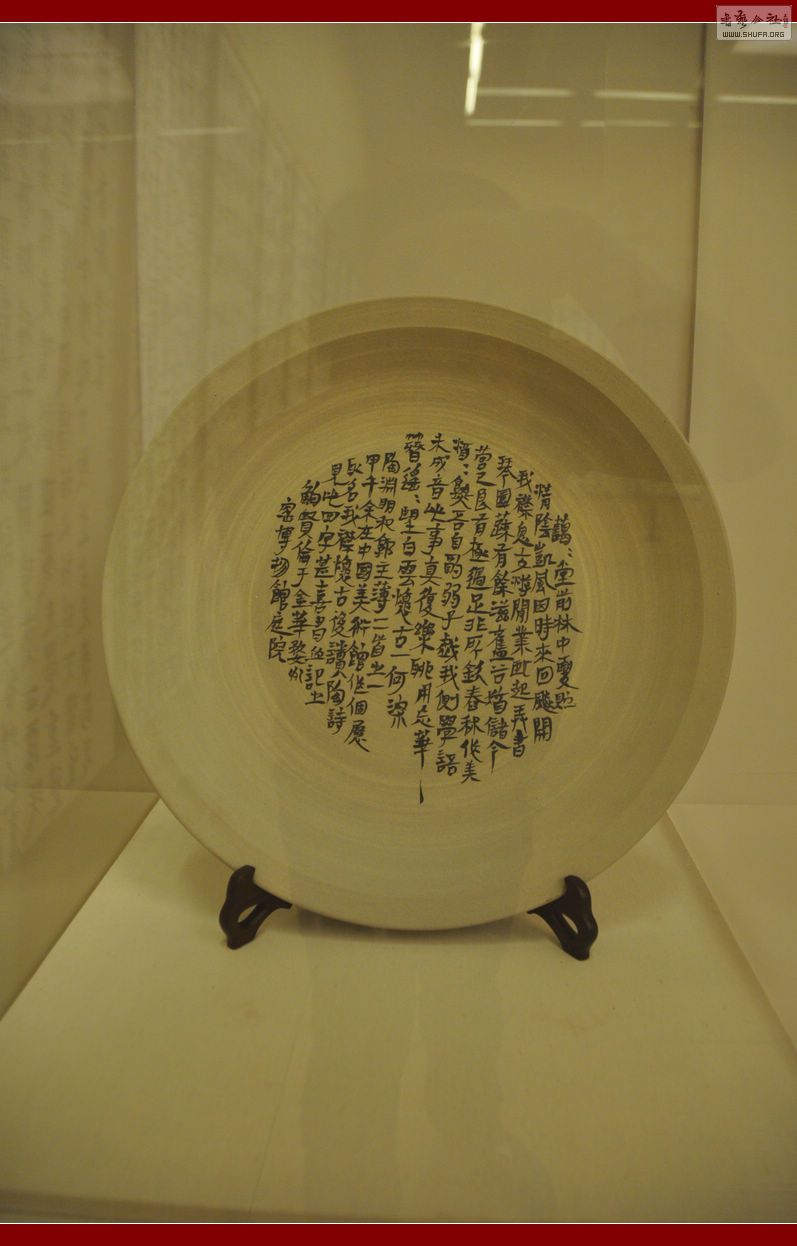 藹〻堂前林中夏貯
清陰凱風因時來回飈開
我襟息交遊閒業臥起弄書
琴園蔬有餘滋舊谷猶儲今
營己良有極過足非所欽舂秫作美
酒〻熟吾自斟弱子戲我側學語
未成音此事真復樂聊用忘華
簪遙〻望白雲懷古一何深
陶淵明和郭主薄二首之一
甲午余在中國美術館作個展
取名我襟懷古後讀陶詩
見此四字甚喜書並記之
鮑賢倫于金華婺州
窯博物館庭院
書藝公社
WWW.SHUFA.ORG